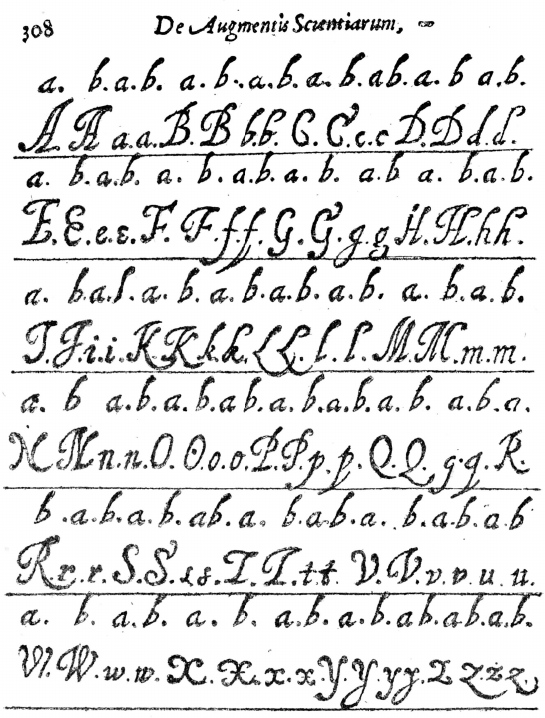 308 De Augmentis Scientiarum,
a. b.a.b. a. b.a.b.a.b.ab.a.b a.b.
A A a.a.B.B b.b. C. C c.c D.D d.d.
a. b.a.b. a. b. a.b.a. b. a.b a. b.a.b.
E.E.e.e.F.F.f.f.G.G.g.g H.H.h.h.
a. b.a.b.a. b. a.b.a.b.a.b. a. b.a.b.
I.I.i.i.K.K.k.k.L.L.l.l.M.M.m.m.
a. b a.b.a.b.ab.a.b.a.b.a.b. a.b.a.
N N n.n.O.O.o.o.P.P.p.p.Q.Q.q.q.R.
b.a.b.a.b.ab.a. b.a.b.a. b.a.b.ab
R.r.r.S.S.s.s.T.T.t.t. V.V.v.v.u u.
a. b. a.b. a. b. a.b.a.b.ab.ab.a.b.
W.W.w.w.X.X.x.x.Y.Y.y.y.Z.Z.z.z.